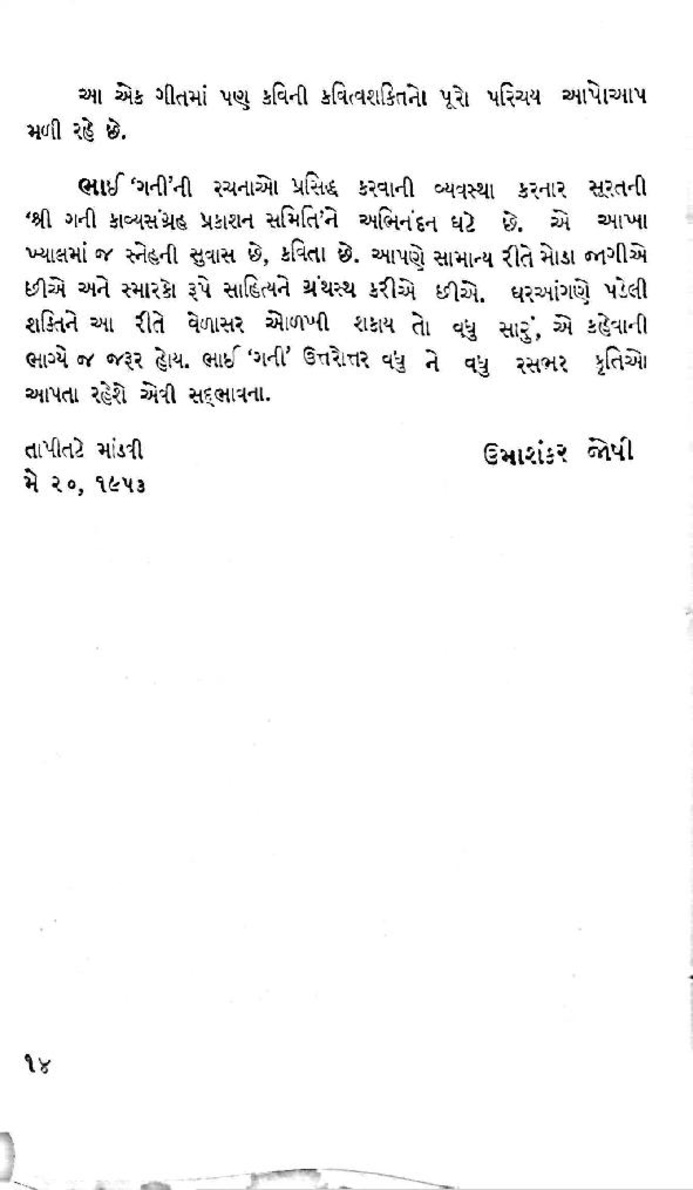 આ એક ગીતમાં પણ કવિની કવિત્વશક્તિનો પૂરો પરિચય આપોઆપ
મળી રહે છે.
ભાઈ ‘ગની’ની રચનાઓ પ્રસિદ્ધ કરવાની વ્યવસ્થા કરનાર સૂરતની
‘શ્રી ગની કાવ્યસંગ્રહ પ્રકાશન સમિતિ’ને અભિનંદન ઘટે છે. એ આખા
ખ્યાલમાં જ સ્નેહની સુવાસ છે, કવિતા છે. આપણે સામાન્ય રીતે મોડા જાગીએ
છીએ અને સ્મારકો રૂપે સાહિત્યને ગ્રંથસ્થ કરીએ છીએ. ઘરઆંગણે પડેલી
શક્તિને આ રીતે વેળાસર ઓળખી શકાય તો વધુ સારું, એ કહેવાની
ભાગ્યે જ જરૂર હોય. ભાઈ ‘ગની’ ઉત્તરોત્તર વધુ ને વધુ રસભર કૃતિઓ
આપતા રહેશે એવી સદ્ભાવના.
તાપીતટે માંડવી
ઉમાશંકર જોષી
મે ૨૦, ૧૯૫૩
૧૪